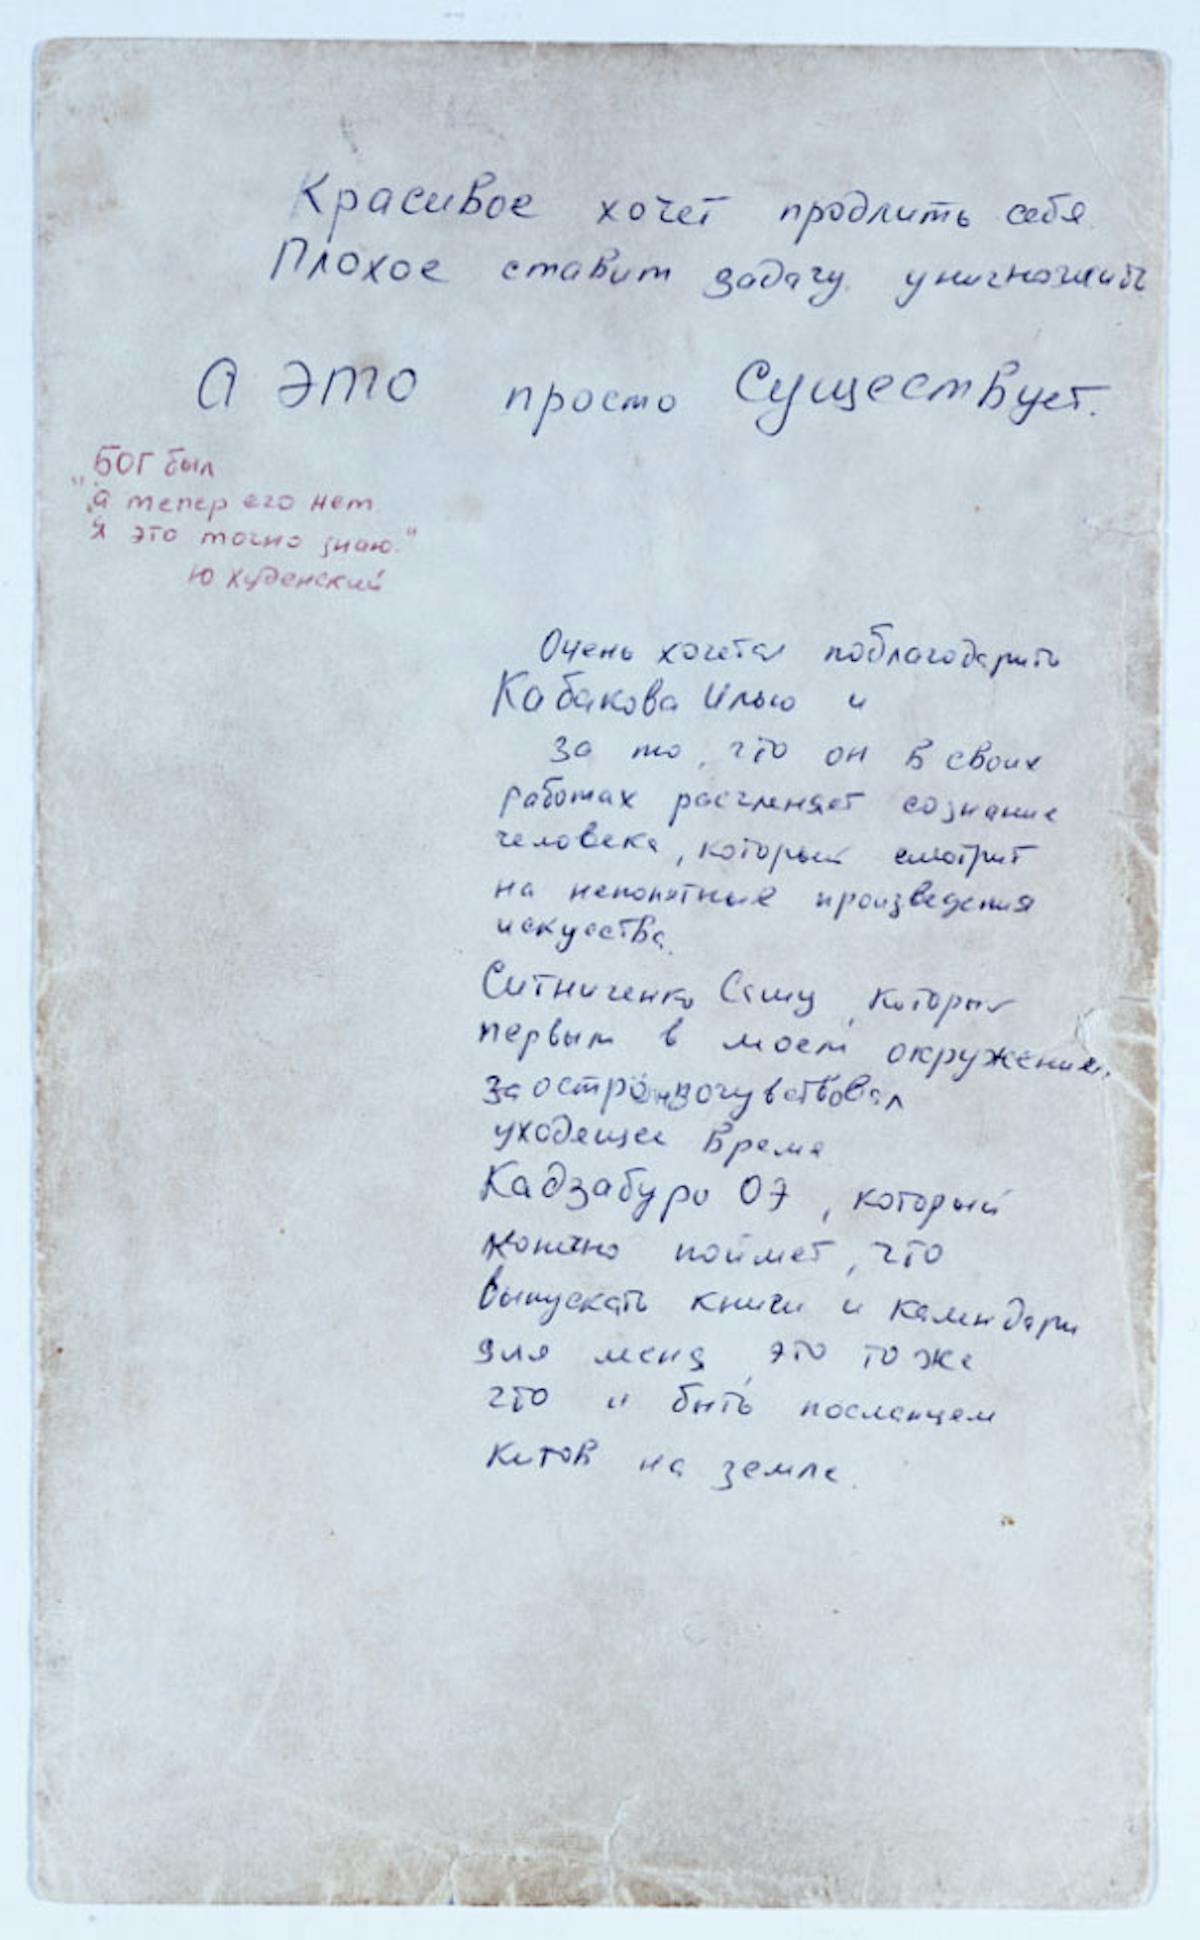 Красивое хочет продлить себя.
Плохое ставит задачу уничтожить
А это просто Существует.
"БОГ был
а тепер его нет
Я это точно знаю."
Ю Худенский
Очень хочется поблагодарить
Кабакова Илью и
за то, что он в своих
работах расчленяет сознание
человека, который смотрит
на непонятные произведения
искуства.
Ситниченко Сашу, который
первым в моем окружении,
заостренно почувствовал
уходящее Время
Кадзабуро ОЭ, который
конечно поймет, что
выпускать книги и календари
для меня, это то же
что и быть посланцем
китов на земле.